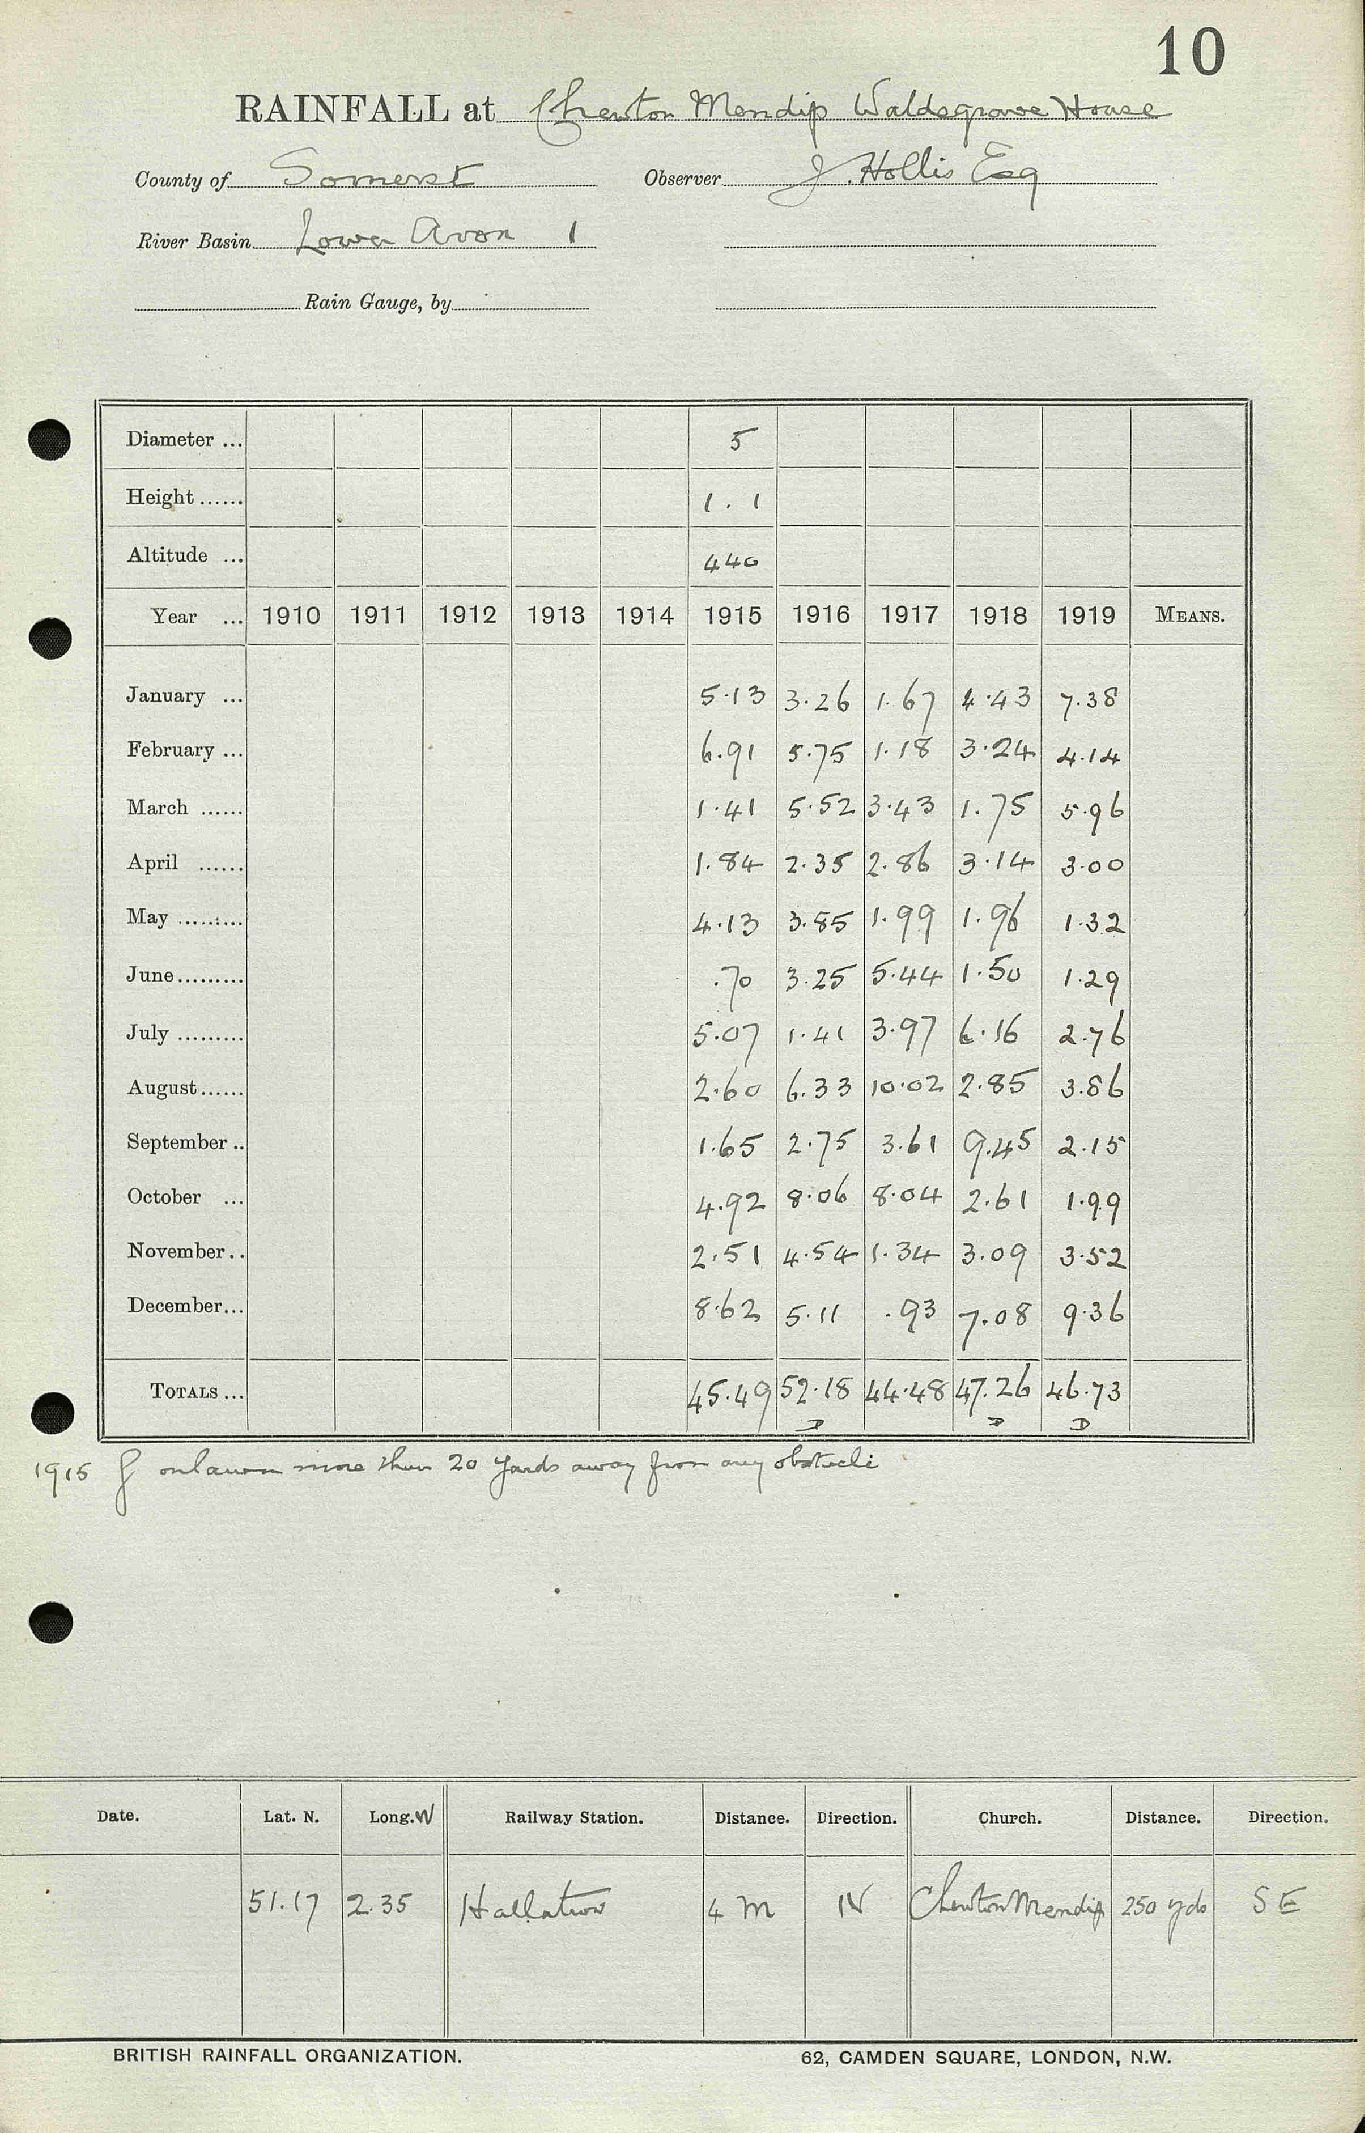 10
RAINFALL at Chewton Mendip Waldegrave House
County of Somerset Observer J. Hollis Esq
River Basin Lower Avon 1
Rain Gauge, by
Diameter ... 5
Height ...... 1.1
Altitude ... 440
Year ... 1910 1911 1912 1913 1914 1915 1916 1917 1918 1919 MEANS.
January ... 5.13 3.26 1.67 4.43 7.38
February ... 6.91 5.75 1.18 3.24 4.14
March ...... 1.41 5.52 3.43 1.75 5.96
April ...... 1.84 2.35 2.86 3.14 3.00
May ......... 4.13 3.85 1.99 1.96 1.32
June ......... .70 3.25 5.44 1.50 1.29
July ......... 5.07 1.41 3.97 6.16 2.76
August ...... 2.60 6.33 10.02 2.85 3.86
September .. 1.65 2.75 3.61 9.45 2.15
October ... 4.92 8.06 8.04 2.61 1.99
November .. 2.51 4.54 1.34 3.09 3.52
December ... 8.62 5.11 .93 7.08 9.36
TOTALS ... 45.49 52.18 44.48 47.26 46.73
D D D
1915 on lawn more than 20 yards away from any obstacle
Date. Lat. N. Long. W Railway Station. Distance. Direction. Church. Distance. Direction.
51.17 2.35 Hallatrow 4 m N Chewton Mendip 250 yds SE
BRITISH RAINFALL ORGANIZATION. 62, CAMDEN SQUARE, LONDON, N.W.